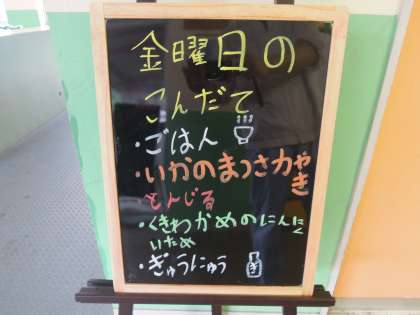 金曜日の
こんだて
・ごはん
・いかのまつさかやき
とんじる
・くきわかめのにんに
いため
・ぎゅうにゅう